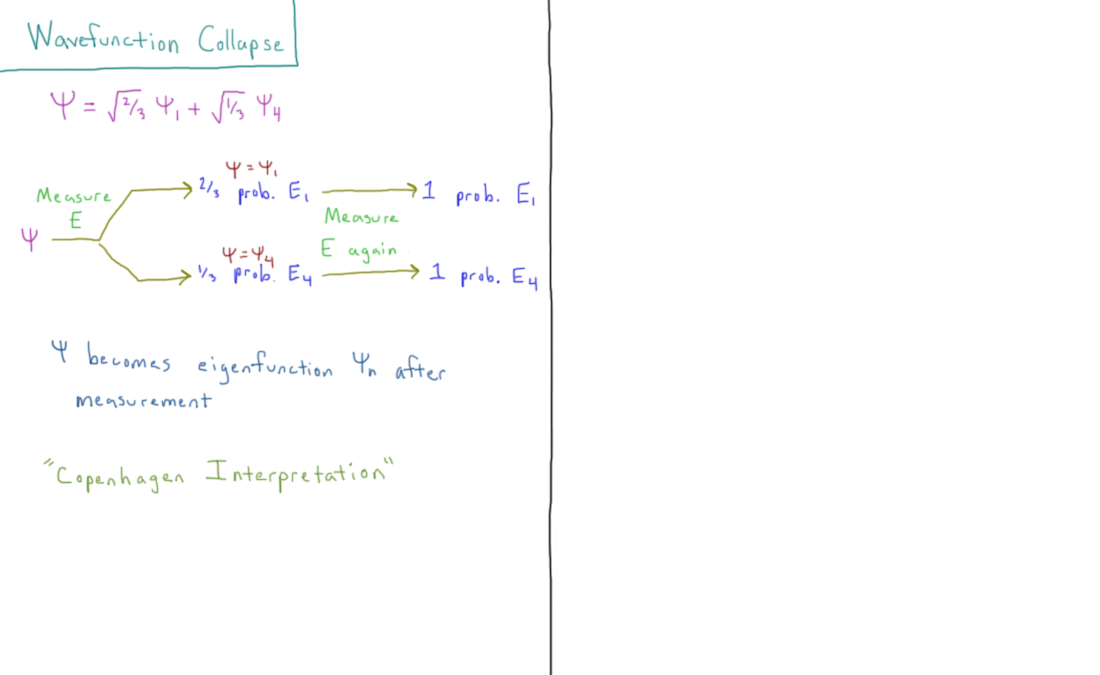 Wavefunction Collapse
Ψ = √2/3 Ψ₁ + √1/3 Ψ₄
Ψ = Ψ₁
Measure E
Ψ
2/3 prob. E₁
1 prob. E₁
Measure
E again
Ψ = Ψ₄
1/3 prob. E₄
1 prob. E₄
Ψ becomes eigenfunction Ψₙ after
measurement
"Copenhagen Interpretation"